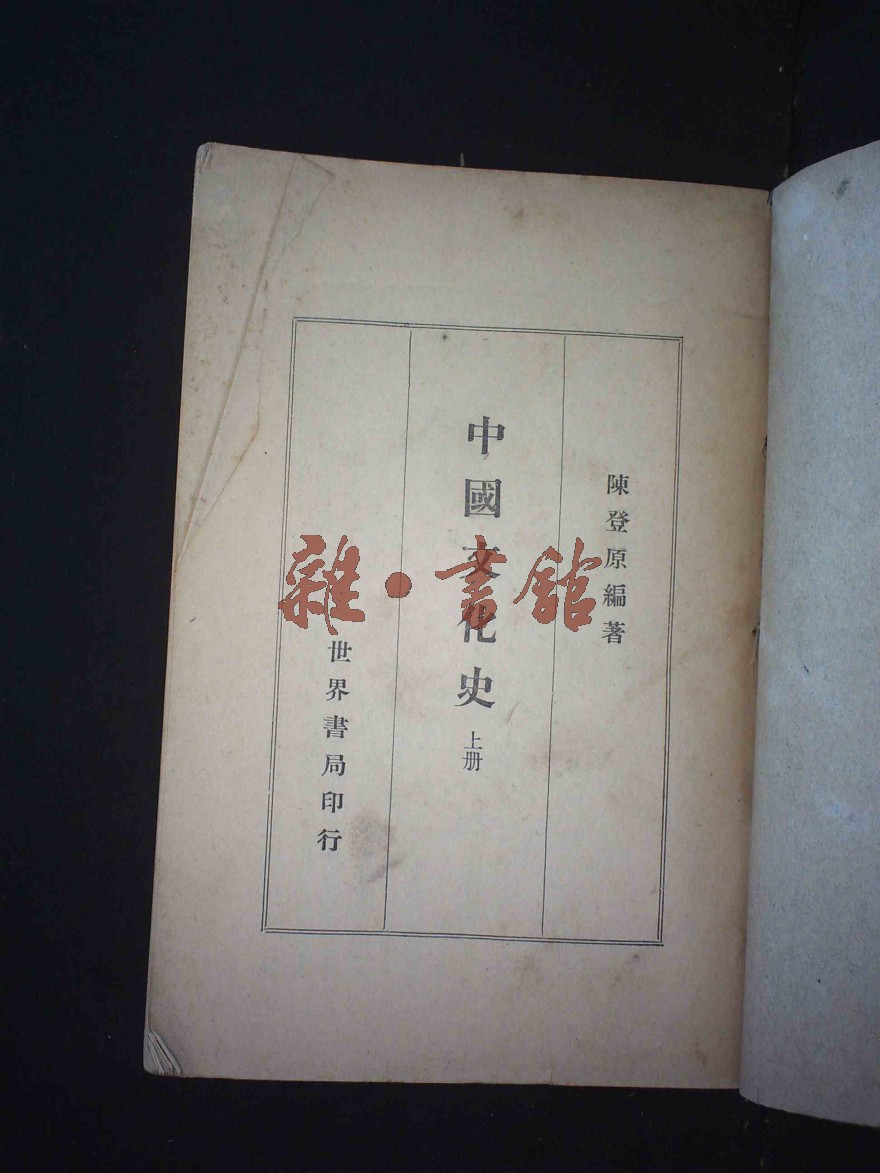 陳登原編著
中國文化史 上册
世界書局印行
雜·書館